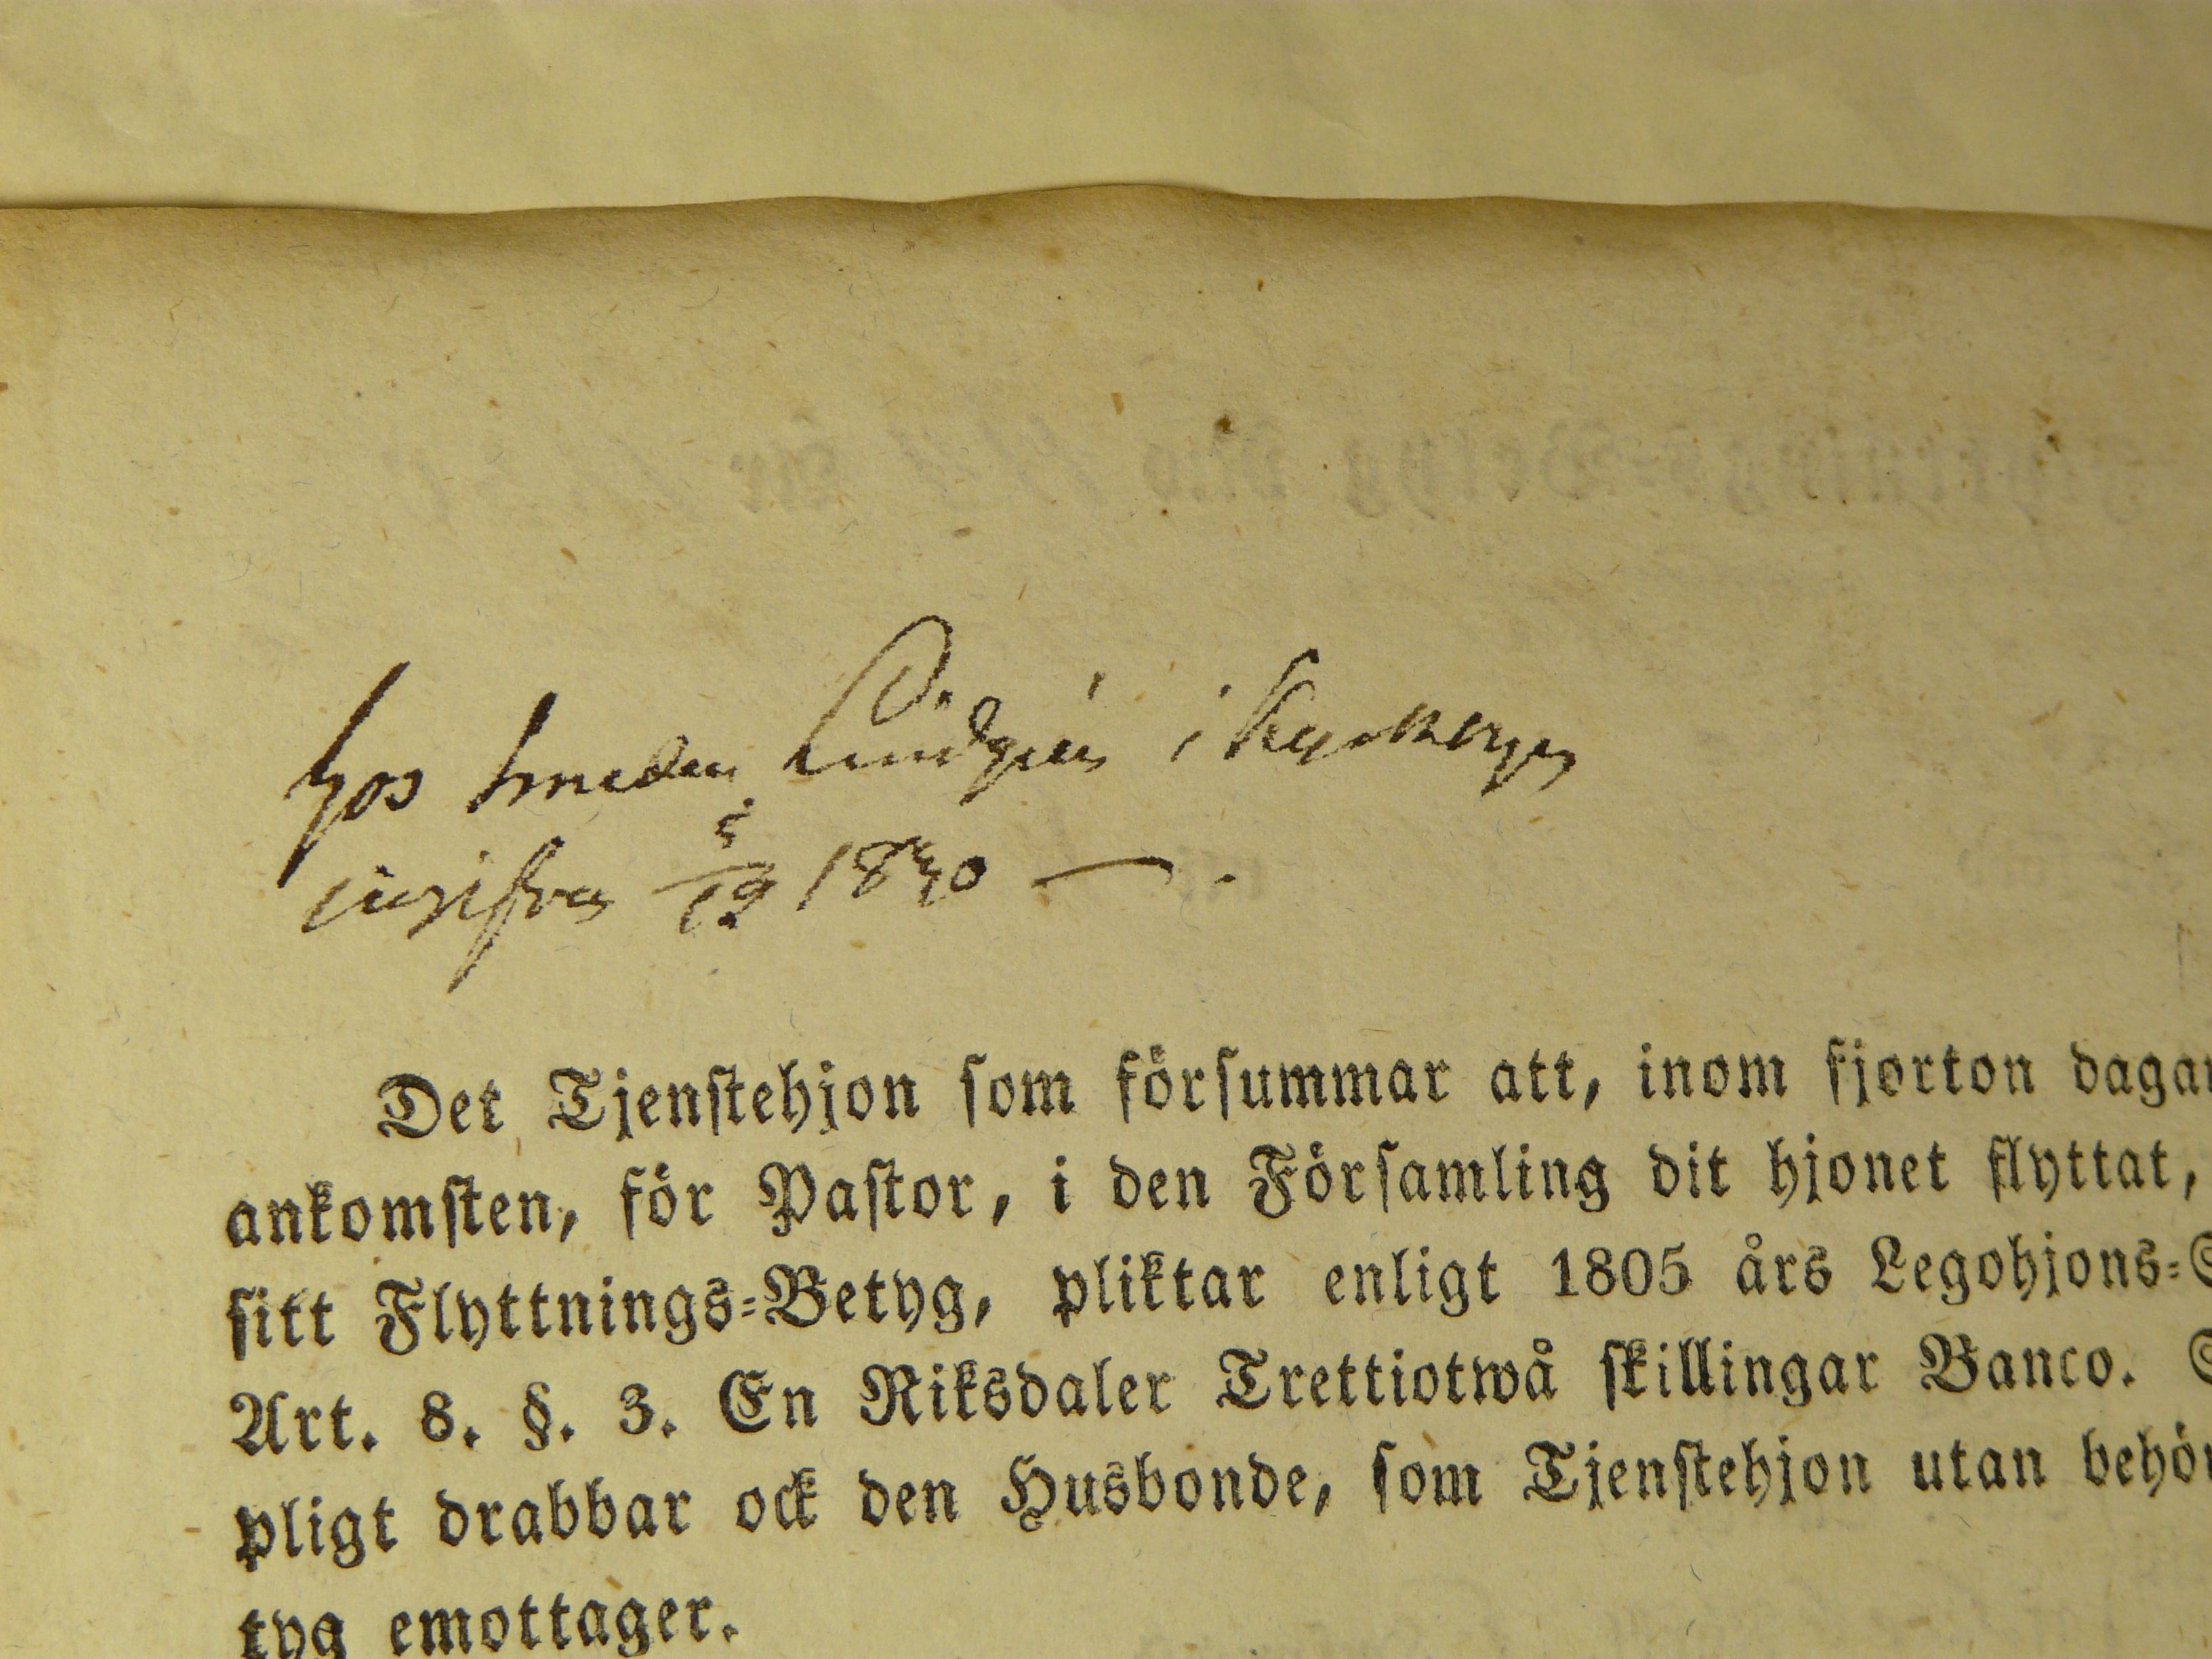 hos smeden Lindgren i
inskrifven 5/12 1840 —.
Det Tjenstehjon som försummar att, inom fjorton dagar
ankomsten, för Pastor, i den Församling dit hjonet flyttat,
sitt Flyttnings-Betyg, pliktar enligt 1805 års Legohjons-S
Art. 8. §. 3. En Riksdaler Trettiotwå skillingar Banco. S
pligt drabbar ock den Husbonde, som Tjenstehjon utan behör
tyg emottager.